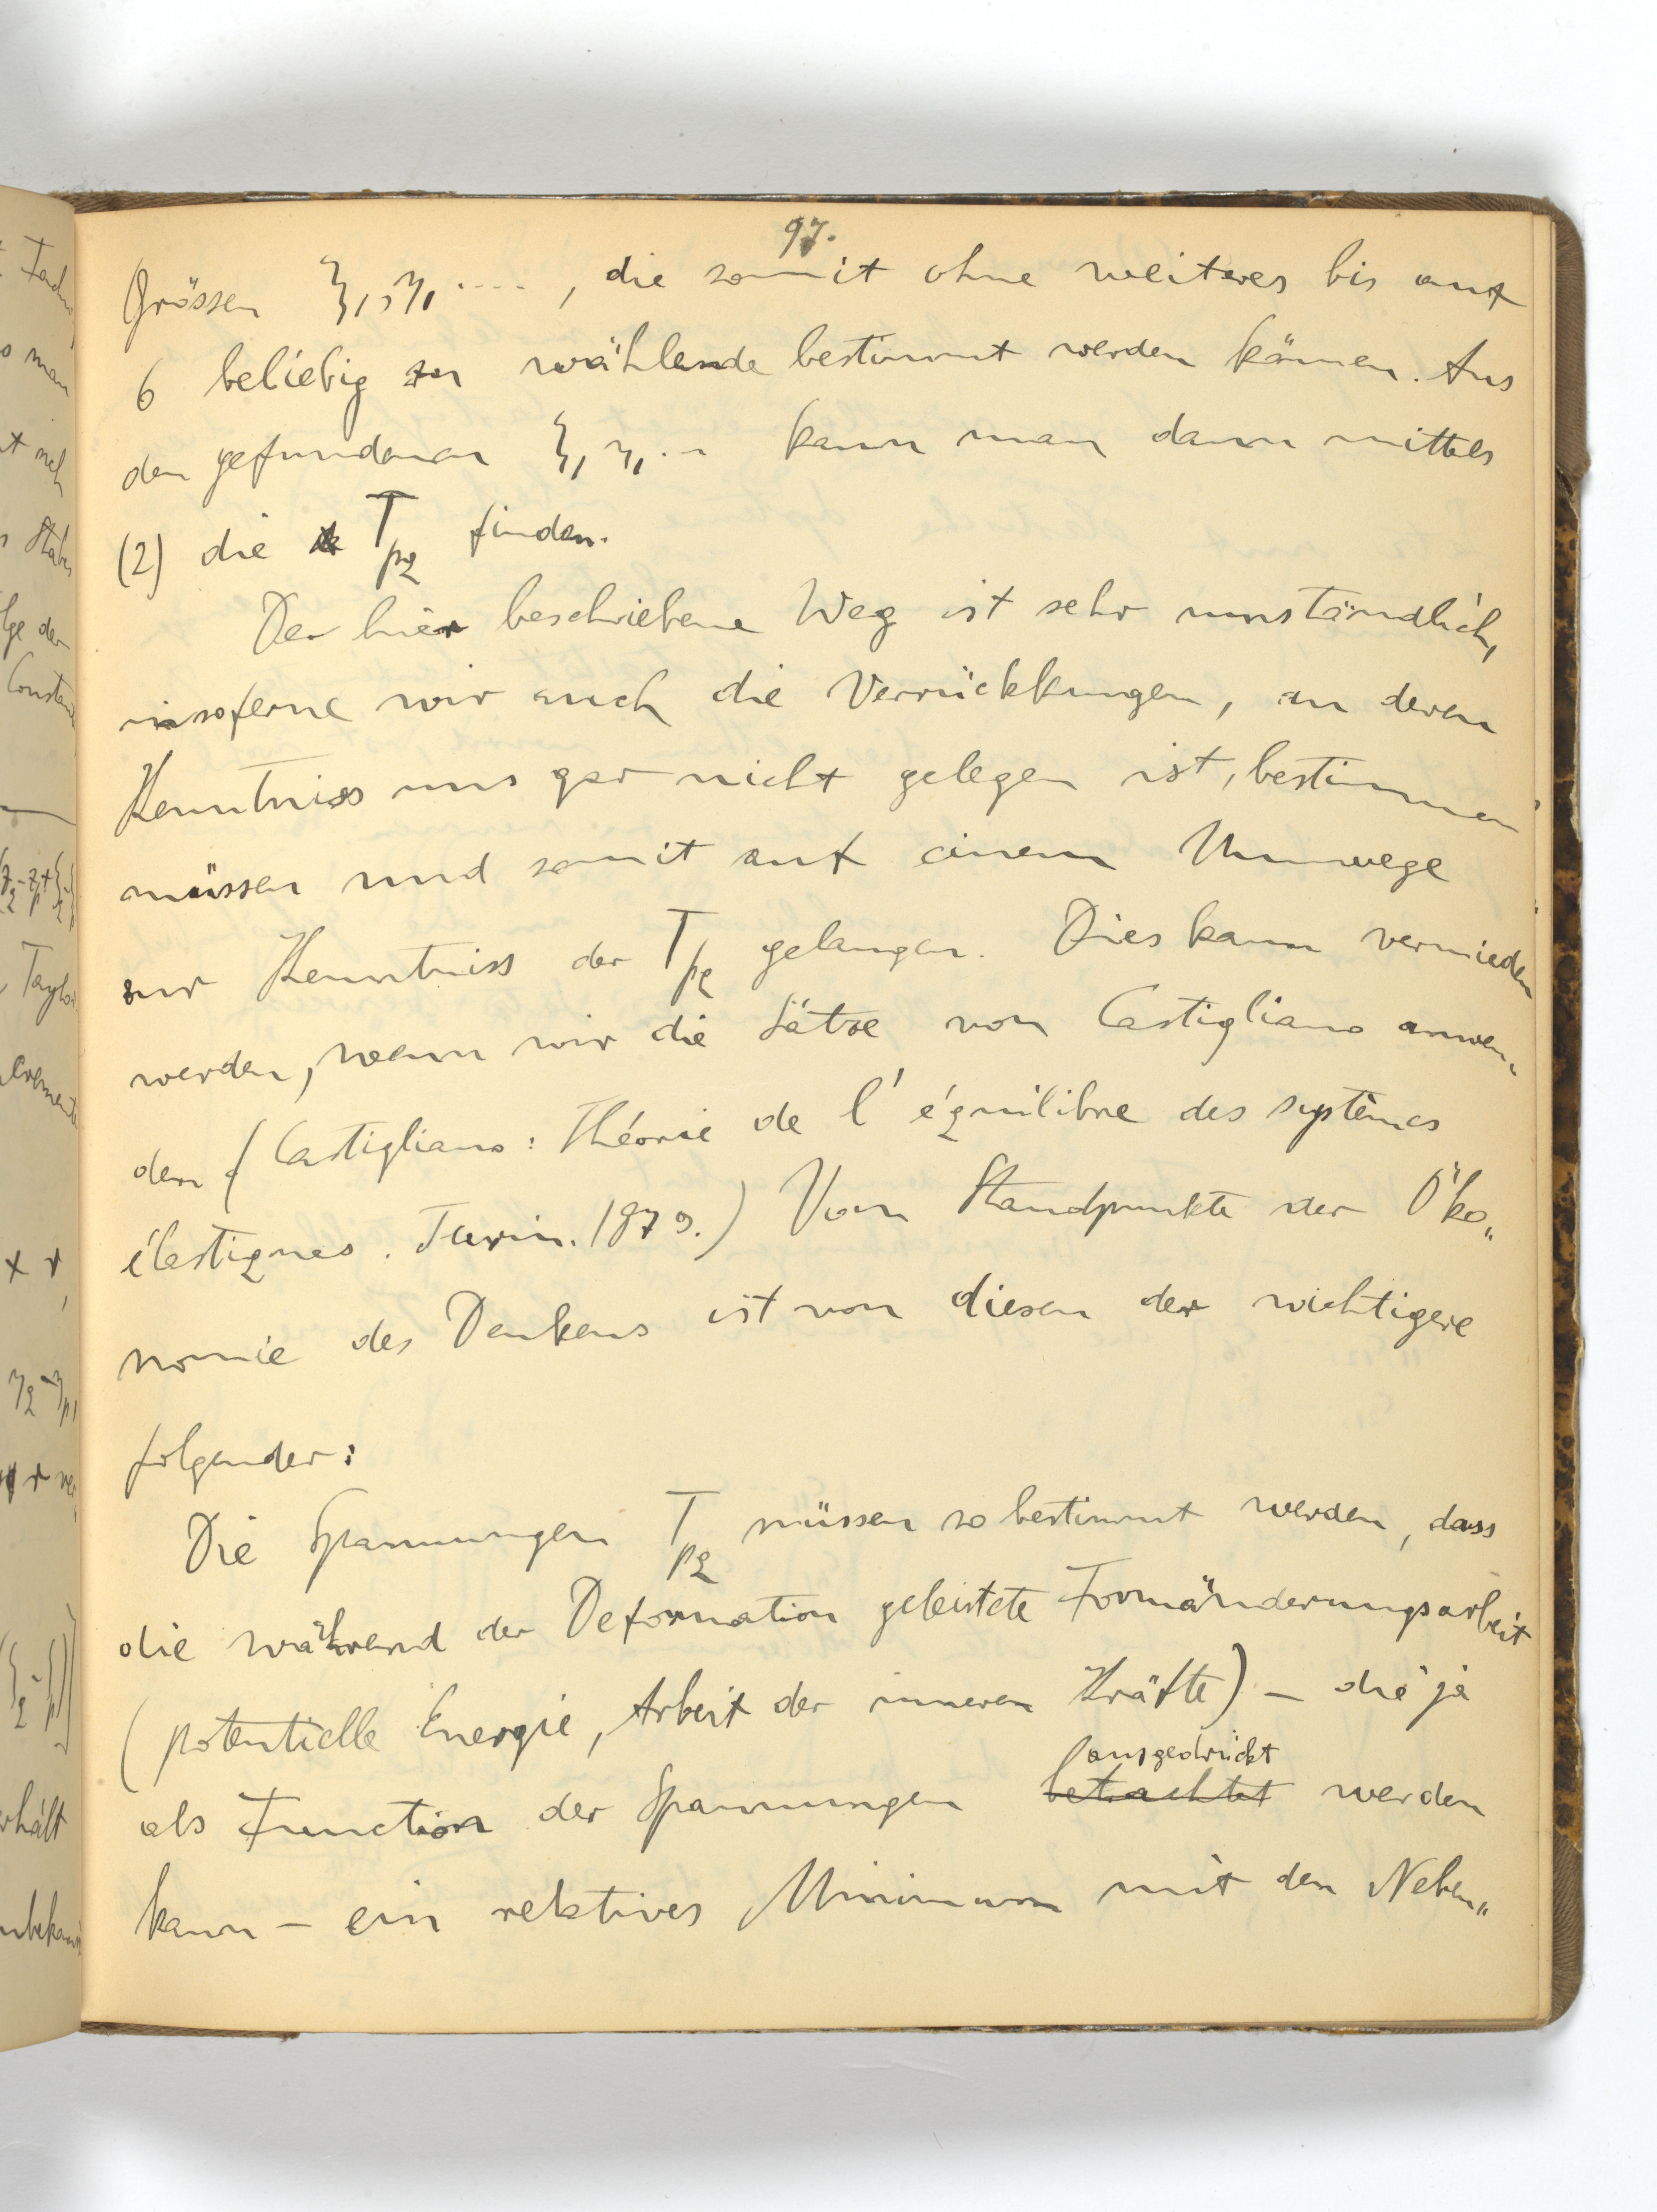 97.
Grössen ξ₁, η₁ ...., die somit ohne weiteres bis auf
6 beliebig zu wählende bestimmt werden können. Aus
den gefundenen ξ₁ η₁ ... kann man dann mittels
(2) die T_pq finden.
Der hier beschriebene Weg ist sehr umständlich,
insoferne wir auch die Verrückkungen, an deren
Kenntniss uns gar nicht gelegen ist, bestimmen
müssen und somit auf einem Umwege
zur Kenntniss der T_pq gelangen. Dies kann vermieden
werden, wenn wir die Sätze von Castigliano anwen„
den (Castigliano: Théorie de l'équilibre des systèmes
élastiques. Turin. 1879.) Vom Standpunkte der Öko„
nomie des Denkens ist von diesen der wichtigere
folgender:
Die Spannungen T_pq müssen so bestimmt werden, dass
die während der Deformation geleistete Formänderungsarbeit
(potentielle Energie, Arbeit der inneren Kräfte) – die ja
ausgedrückt
als Function der Spannungen betrachtet werden
kann – ein relatives Minimum mit den Neben„